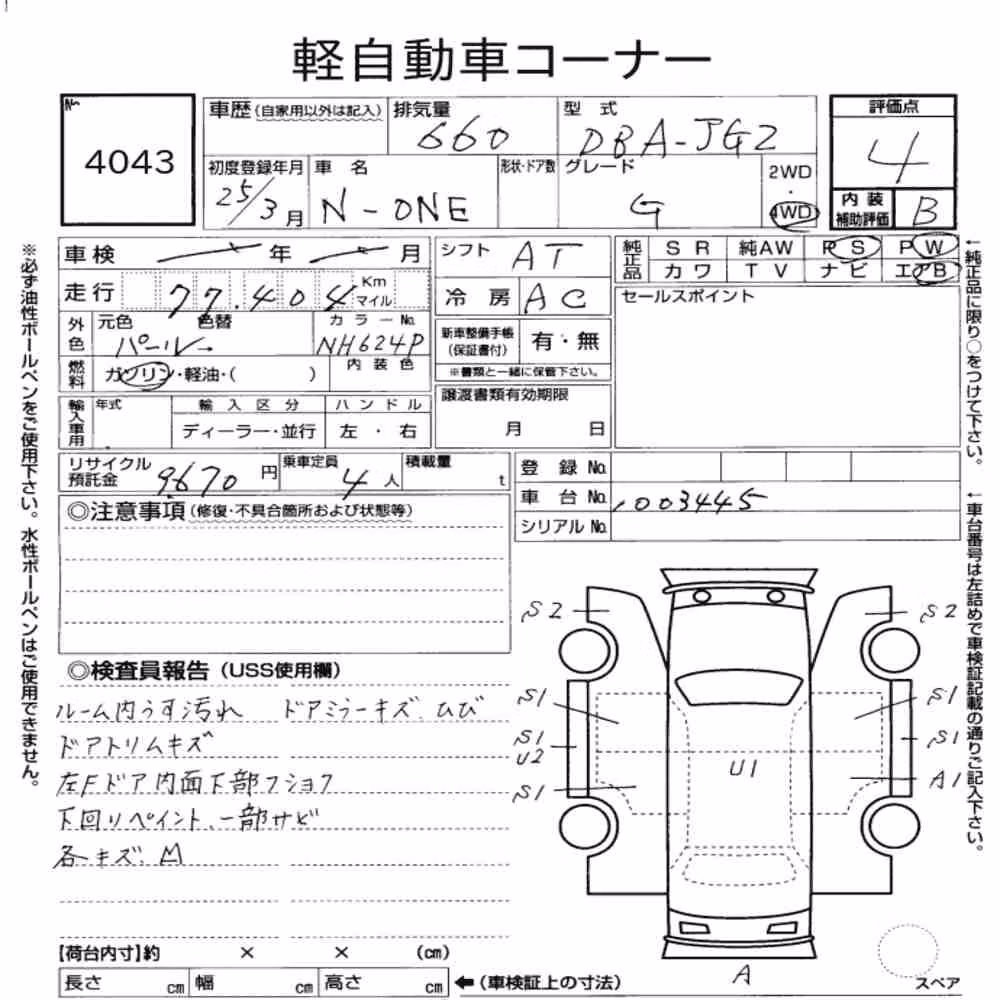 軽自動車コーナー
No.
4043
車歴 (自家用以外は記入)
排気量
660
型式
DBA-JG2
評価点
4
初度登録年月
25/3月
車名
N-ONE
形状・ドア数
グレード
G
2WD
・
4WD
内装補助評価
B
車検 年 月
シフト
AT
純正品
SR 純AW PS PW
カワ TV ナビ エアB
走行
77.404
Km
マイル
冷房
AC
セールスポイント
外色
元色 色替
パール
カラーNo.
NH624P
新車整備手帳
(保証書付)
有・無
※書類と一緒に保管下さい。
燃料
ガソリン・軽油・( )
内装色
輸入車用
年式
輸入区分
ハンドル
ディーラー・並行
左・右
譲渡書類有効期限
月 日
リサイクル預託金
9670円
乗車定員
4人
積載量
t
登録No.
車台No.
1003445
シリアルNo.
◎注意事項(修復・不具合箇所および状態等)
◎検査員報告(USS使用欄)
ルーム内うす汚れ ドアミラーキズ、ひび
ドアトリムキズ
左Fドア内面下部フショク
下回りペイント、一部サビ
各キズ、M
S2
S2
S1
S1
S1
U2
S1
S1
A1
U1
A
【荷台内寸】約 × × (cm)
長さ cm 幅 cm 高さ cm
←(車検証上の寸法)
スペア
※必ず油性ボールペンをご使用下さい。水性ボールペンはご使用できません。
←純正品に限り○をつけて下さい。
←車台番号は左詰めで車検証記載の通りご記入下さい。